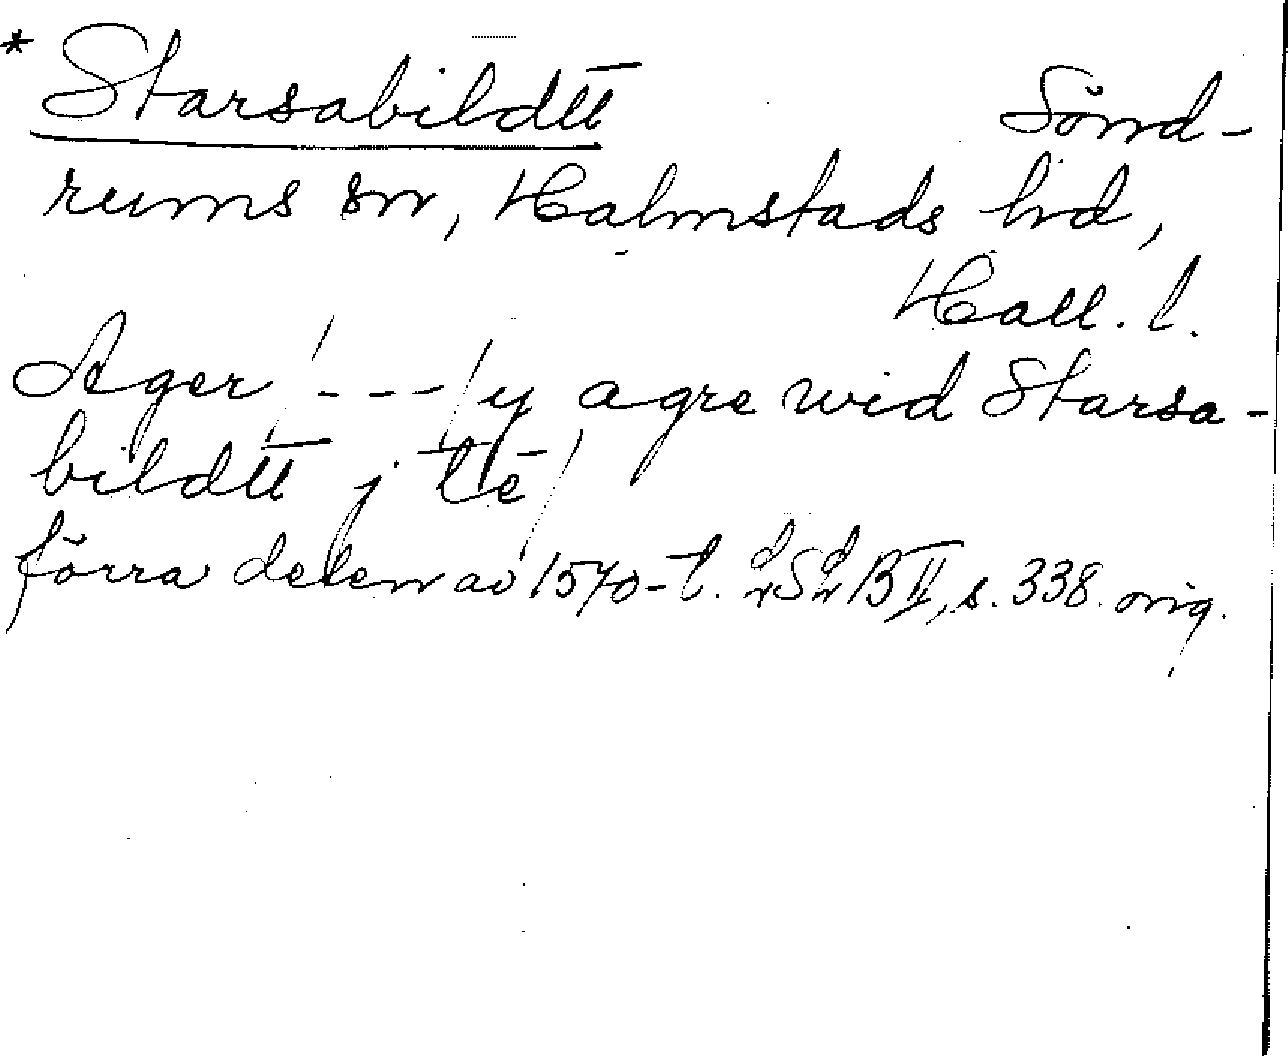 * Starsabildtt Sönd-
rums sn, Halmstads hd,
Hall. l.
Ager / --- / y agre wid Starsa-
bildtt j tē /
förra delen av 1570-t. B II, s. 338. orig.